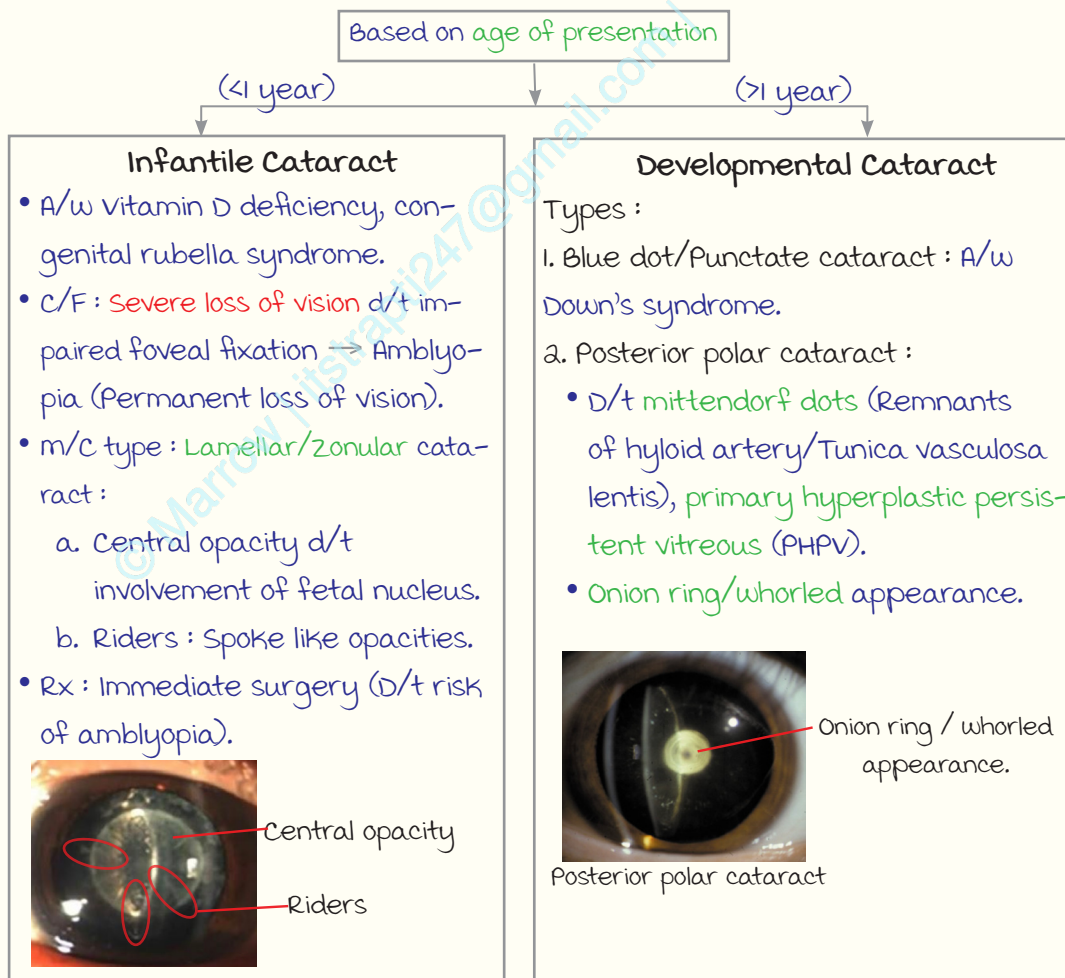 Based on age of presentation
(<1 year)
(>1 year)
Infantile Cataract
• A/w Vitamin D deficiency, con-
genital rubella syndrome.
• C/F : Severe loss of vision d/t im-
paired foveal fixation → Amblyo-
pia (Permanent loss of vision).
• m/c type : Lamellar/Zonular cata-
ract :
a. Central opacity d/t
involvement of fetal nucleus.
b. Riders : Spoke like opacities.
• Rx : Immediate surgery (D/t risk
of amblyopia).
Central opacity
Riders
Developmental Cataract
Types :
1. Blue dot/Punctate cataract : A/w
Down's syndrome.
2. Posterior polar cataract :
• D/t mittendorf dots (Remnants
of hyloid artery/Tunica vasculosa
lentis), primary hyperplastic persis-
tent vitreous (PHPV).
• Onion ring/whorled appearance.
Onion ring / whorled
appearance.
Posterior polar cataract
© Marrow | itstrapti247@gmail.com |